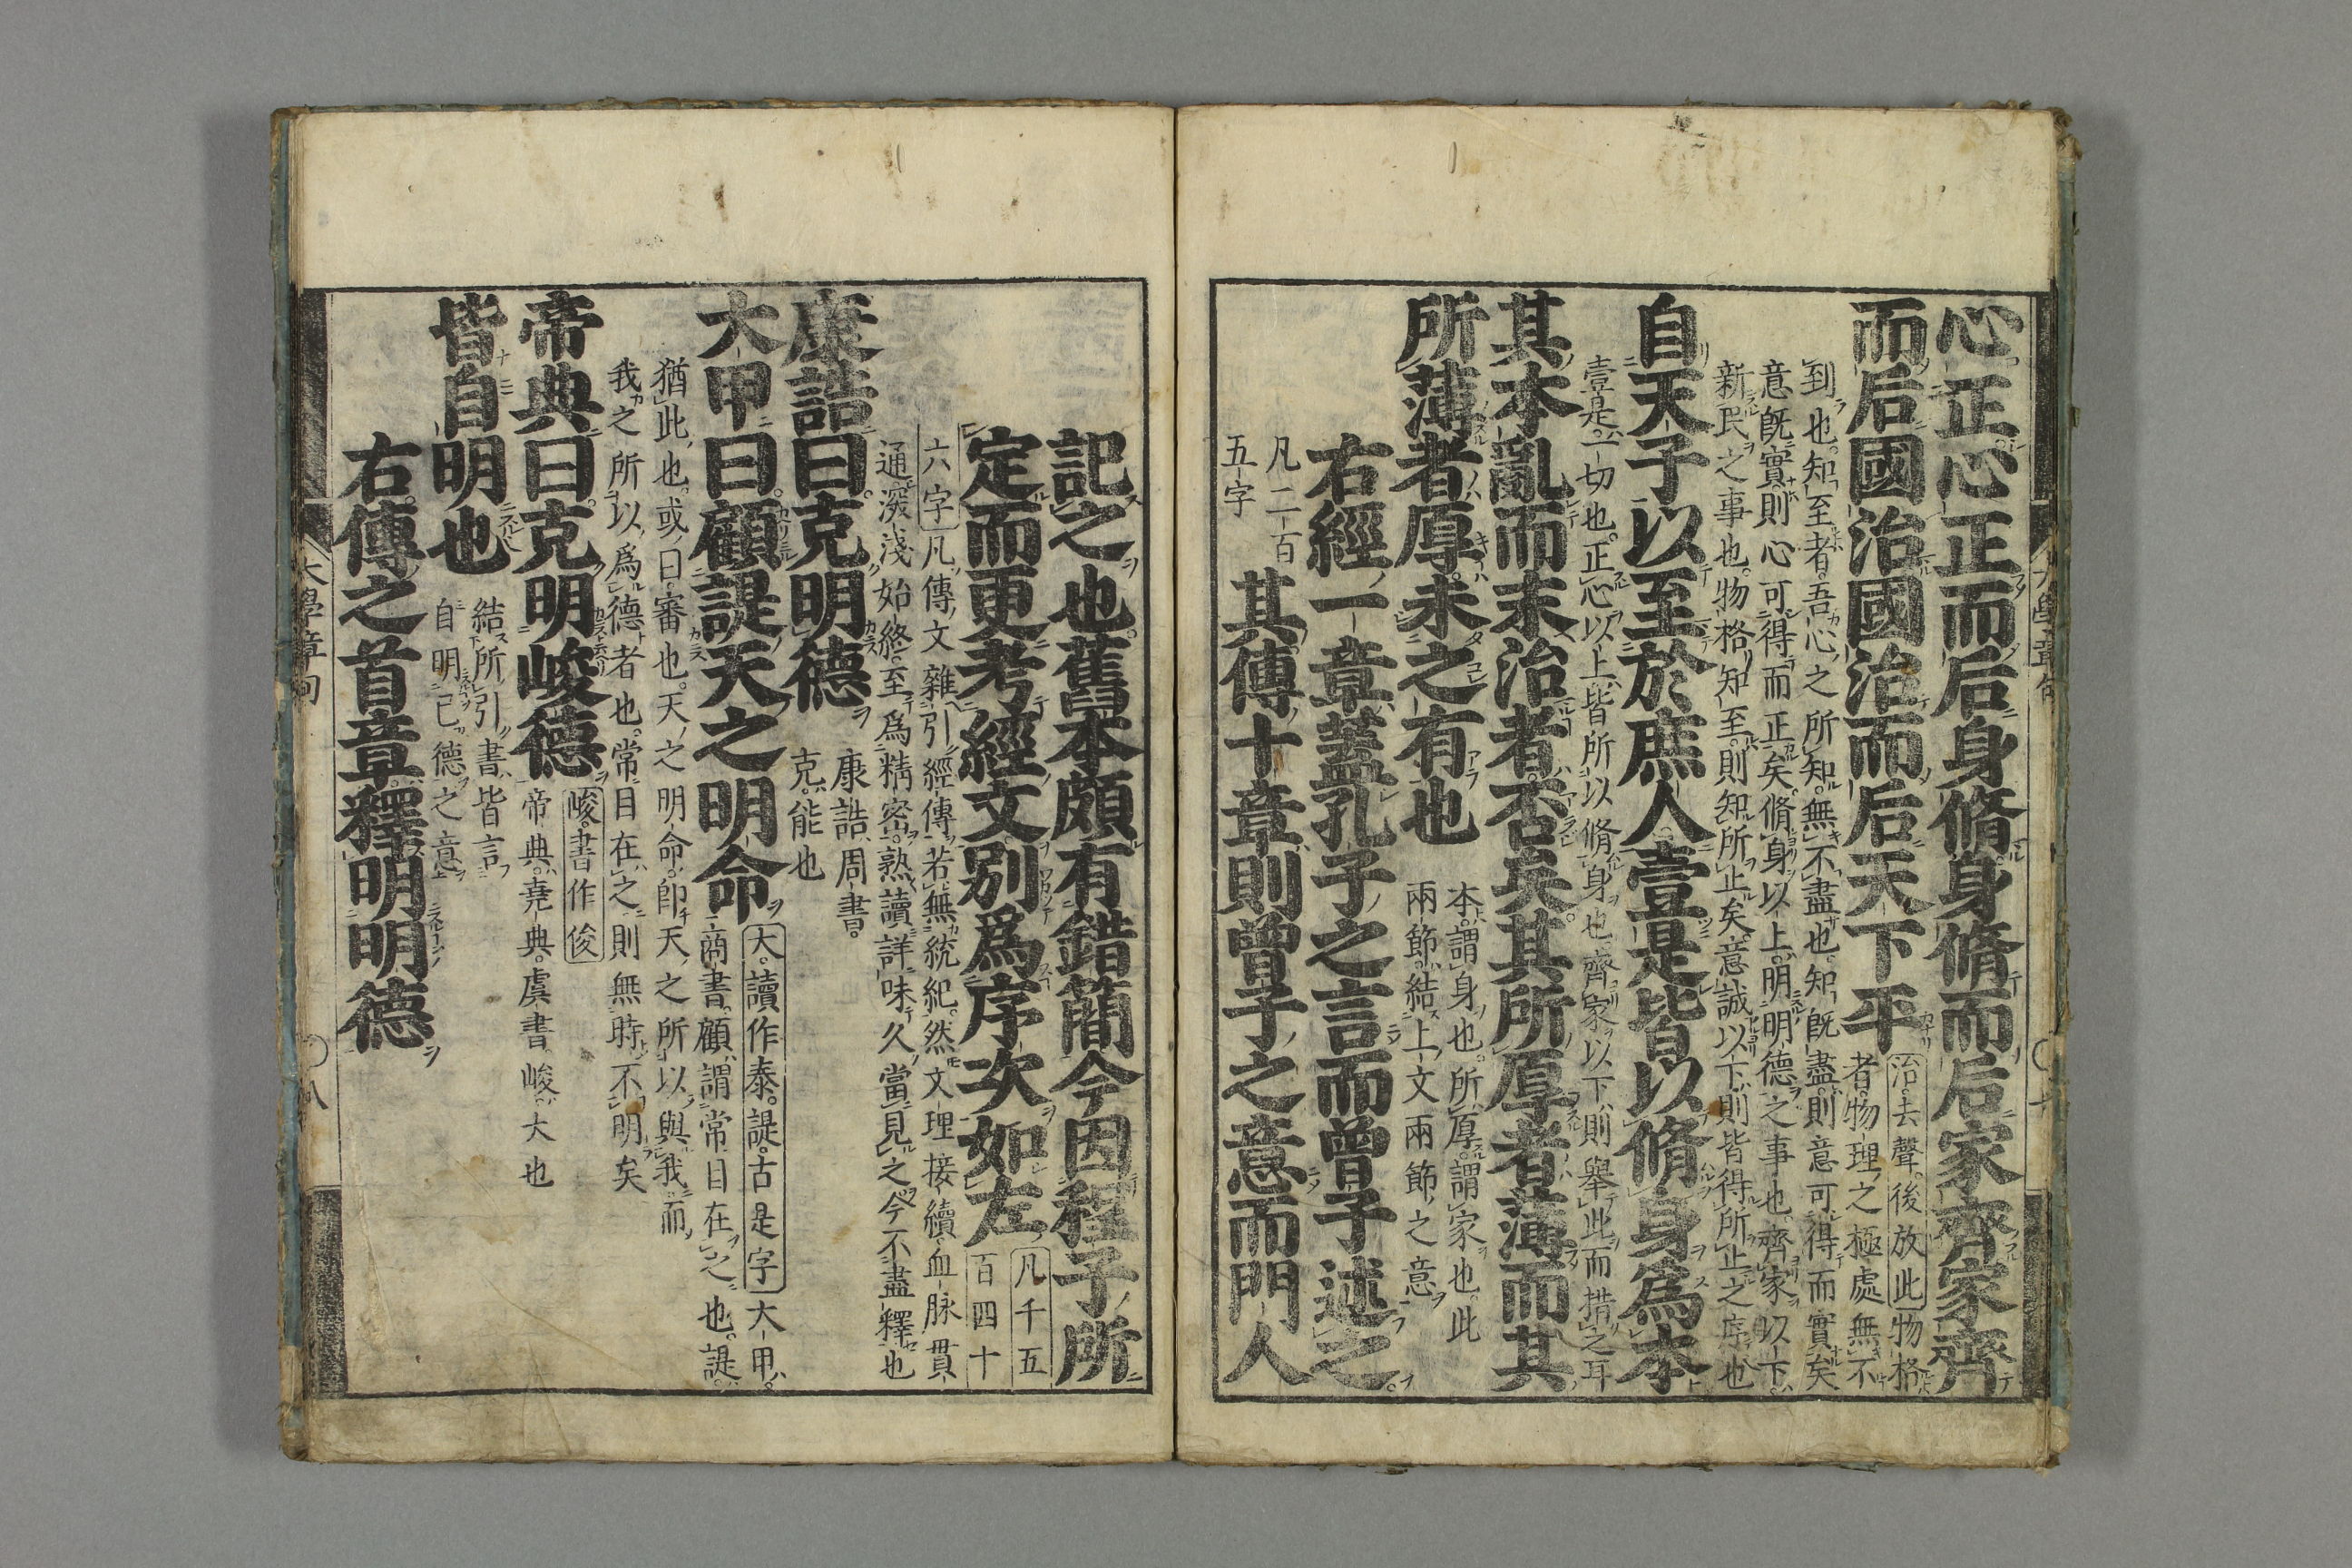 心正心正而后身脩身脩而后家齊家齊
而后國治國治而后天下平
治去聲。後放此物格
者。物理之極處無不
到也。知至者。吾心之所知。無不盡也。知既盡。則意可得而實矣
意既實。則心可得而正矣。脩身以上。明明德之事也。齊家以下。
新民之事也。物格知至。則知所止矣。意誠以下。則皆得所止之序也
自天子以至於庶人壹是皆以脩身爲本
壹是。一切也。正心以上。皆所以脩身也。齊家以下。則舉此而措之耳
其本亂而末治者否矣其所厚者薄而其
所薄者厚未之有也
本。謂身也。所厚。謂家也。此
兩節。結上文兩節之意
右經一章蓋孔子之言而曾子述之
凡二百
五字
其傳十章則曾子之意而門人
大學章句
記之也舊本頗有錯簡今因程子所
定而更考經文別爲序次如左
凡千五
百四十
六字
凡傳文雜引經傳。若無統紀。然文理接續。血脉貫
通。深淺始終。至爲精密。熟讀詳味。久當見之。今不盡釋也
康誥曰克明德
康誥。周書。
克。能也
大甲曰顧諟天之明命
大。讀作泰。諟。古是字
大甲。
商書。顧。謂常目在之也。諟。
猶此也。或曰。審也。天之明命。卽天之所以與我。而
我之所以爲德者也。常目在之。則無時不明矣
帝典曰克明峻德
峻。書作俊
帝典。堯典。虞書。峻。大也
皆自明也
結所引書。皆言
自明己德之意
右傳之首章釋明明德
大學章句
八